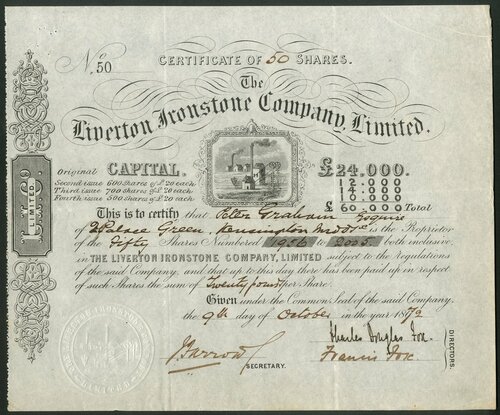 No. 50
CERTIFICATE OF 50 SHARES.
The
Liverton Ironstone Company, Limited.
Original CAPITAL. £24.000.
Second issue 600 Shares of £20 each. 12.000
Third issue 700 Shares of £20 each. 14.000
Fourth issue 500 Shares of £20 each. 10.000
£ 60.000 Total
This is to certify that Peter Graham Esquire
of 2 Palace Green, Kensington Middx is the Proprietor
of the Fifty Shares Numbered 1956 to 2005 both inclusive,
in THE LIVERTON IRONSTONE COMPANY, LIMITED subject to the regulations
of the said Company, and that up to this day there has been paid up in respect
of such Shares the sum of Twenty pounds per Share.
Given under the Common Seal of the said Company,
the 9th day of October in the year 1872
Charles Douglas Fox
Francis Fox
DIRECTORS.
J. Farrow
SECRETARY.
L.I.Co.
LIMITED